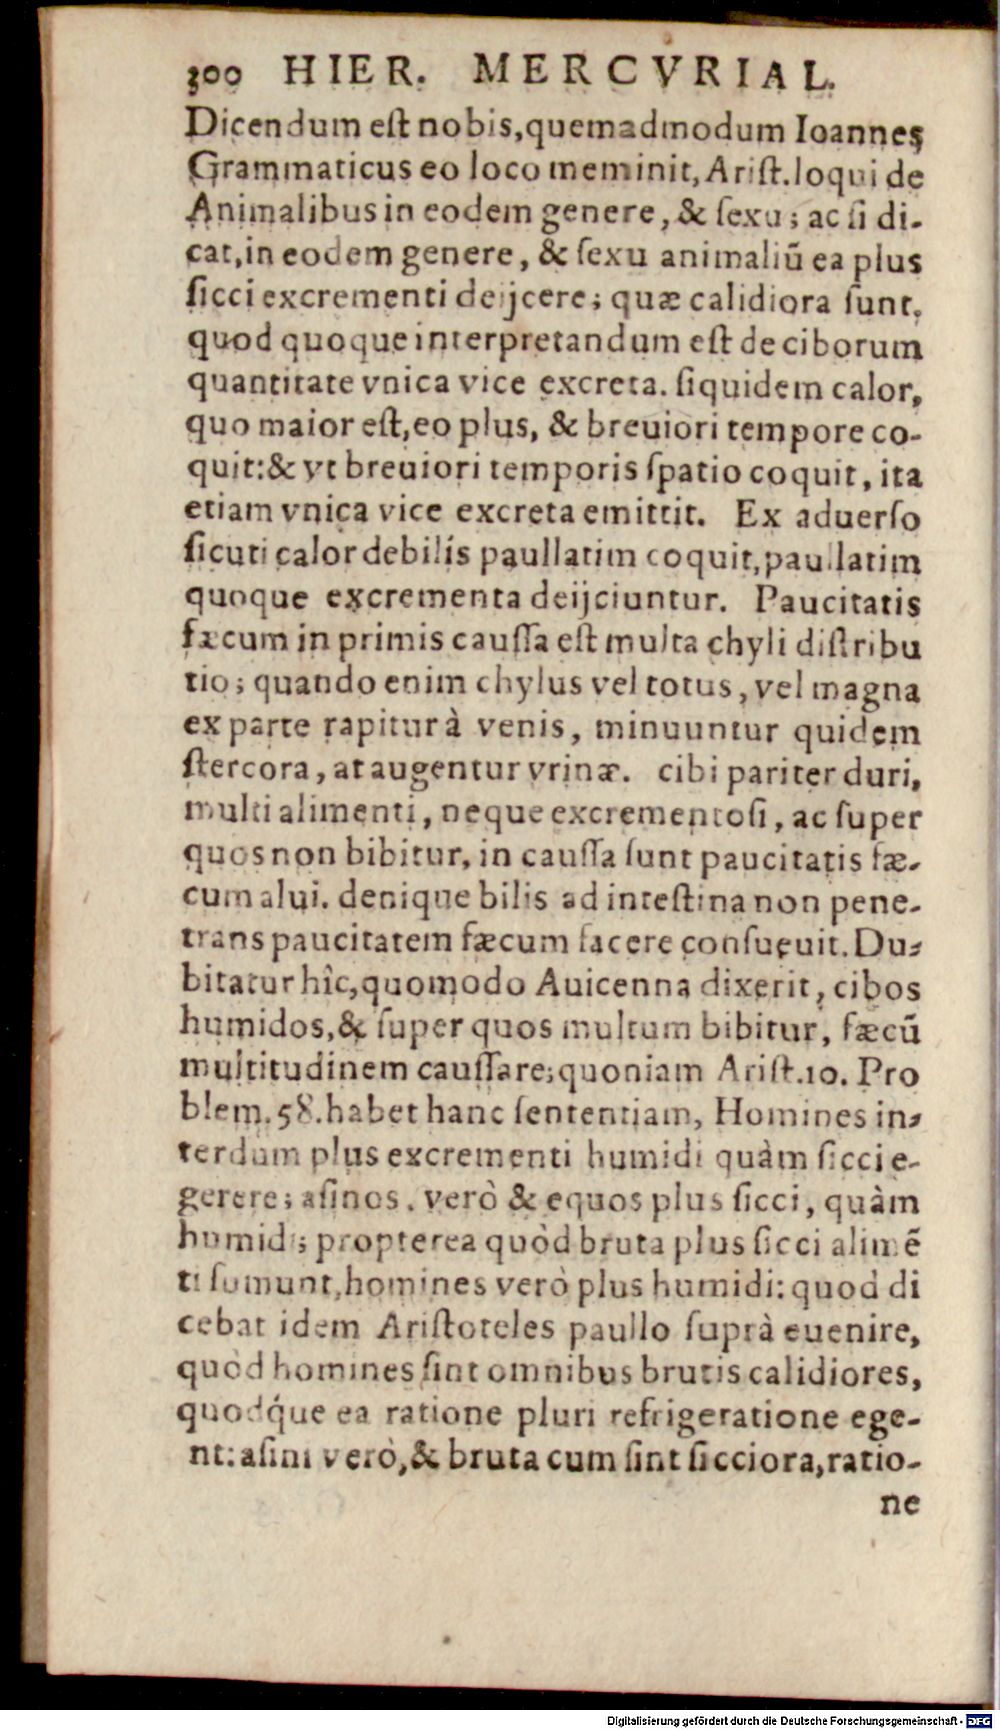 300 HIER. MERCVRIAL.
Dicendum eſt nobis, quemadmodum Ioannes
Grammaticus eo loco meminit, Ariſt. loqui de
Animalibus in eodem genere, & ſexu; ac ſi di-
cat, in eodem genere, & ſexu animaliũ ea plus
ſicci excrementi deijcere; quæ calidiora ſunt.
quod quoque interpretandum eſt de ciborum
quantitate vnica vice excreta. ſiquidem calor,
quo maior eſt, eo plus, & breuiori tempore co-
quit: & vt breuiori temporis ſpatio coquit, ita
etiam vnica vice excreta emittit. Ex aduerſo
ſicuti calor debilis paullatim coquit, paullatim
quoque excrementa deijciuntur. Paucitatis
fæcum in primis cauſſa eſt multa chyli diſtribu
tio; quando enim chylus vel totus, vel magna
ex parte rapitur à venis, minuuntur quidem
ſtercora, at augentur vrinæ. cibi pariter duri,
multi alimenti, neque excrementoſi, ac ſuper
quos non bibitur, in cauſſa ſunt paucitatis fæ-
cum alui. denique bilis ad inteſtina non pene-
trans paucitatem fæcum facere conſueuit. Du-
bitatur hîc, quomodo Auicenna dixerit, cibos
humidos, & ſuper quos multum bibitur, fæcũ
multitudinem cauſſare; quoniam Ariſt. 10. Pro
blem. 58. habet hanc ſententiam, Homines in-
terdum plus excrementi humidi quàm ſicci e-
gerere; aſinos. verò & equos plus ſicci, quàm
humidi; propterea quòd bruta plus ſicci alimẽ
ti ſumunt, homines verò plus humidi: quod di
cebat idem Ariſtoteles paullo ſuprà euenire,
quòd homines ſint omnibus brutis calidiores,
quodq́ue ea ratione pluri refrigeratione ege-
nt: aſini verò, & bruta cum ſint ſicciora, ratio-
ne
Digitalisierung gefördert durch die Deutsche Forschungsgemeinschaft - DFG